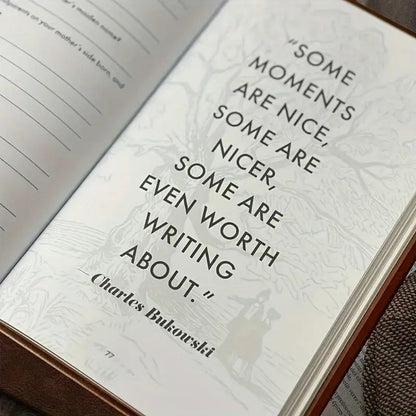 mother's maiden name?
grandparents on your mother's side born, and
"SOME
MOMENTS
ARE NICE,
SOME ARE
NICER,
SOME ARE
EVEN WORTH
WRITING
ABOUT."
—Charles Bukowski
77